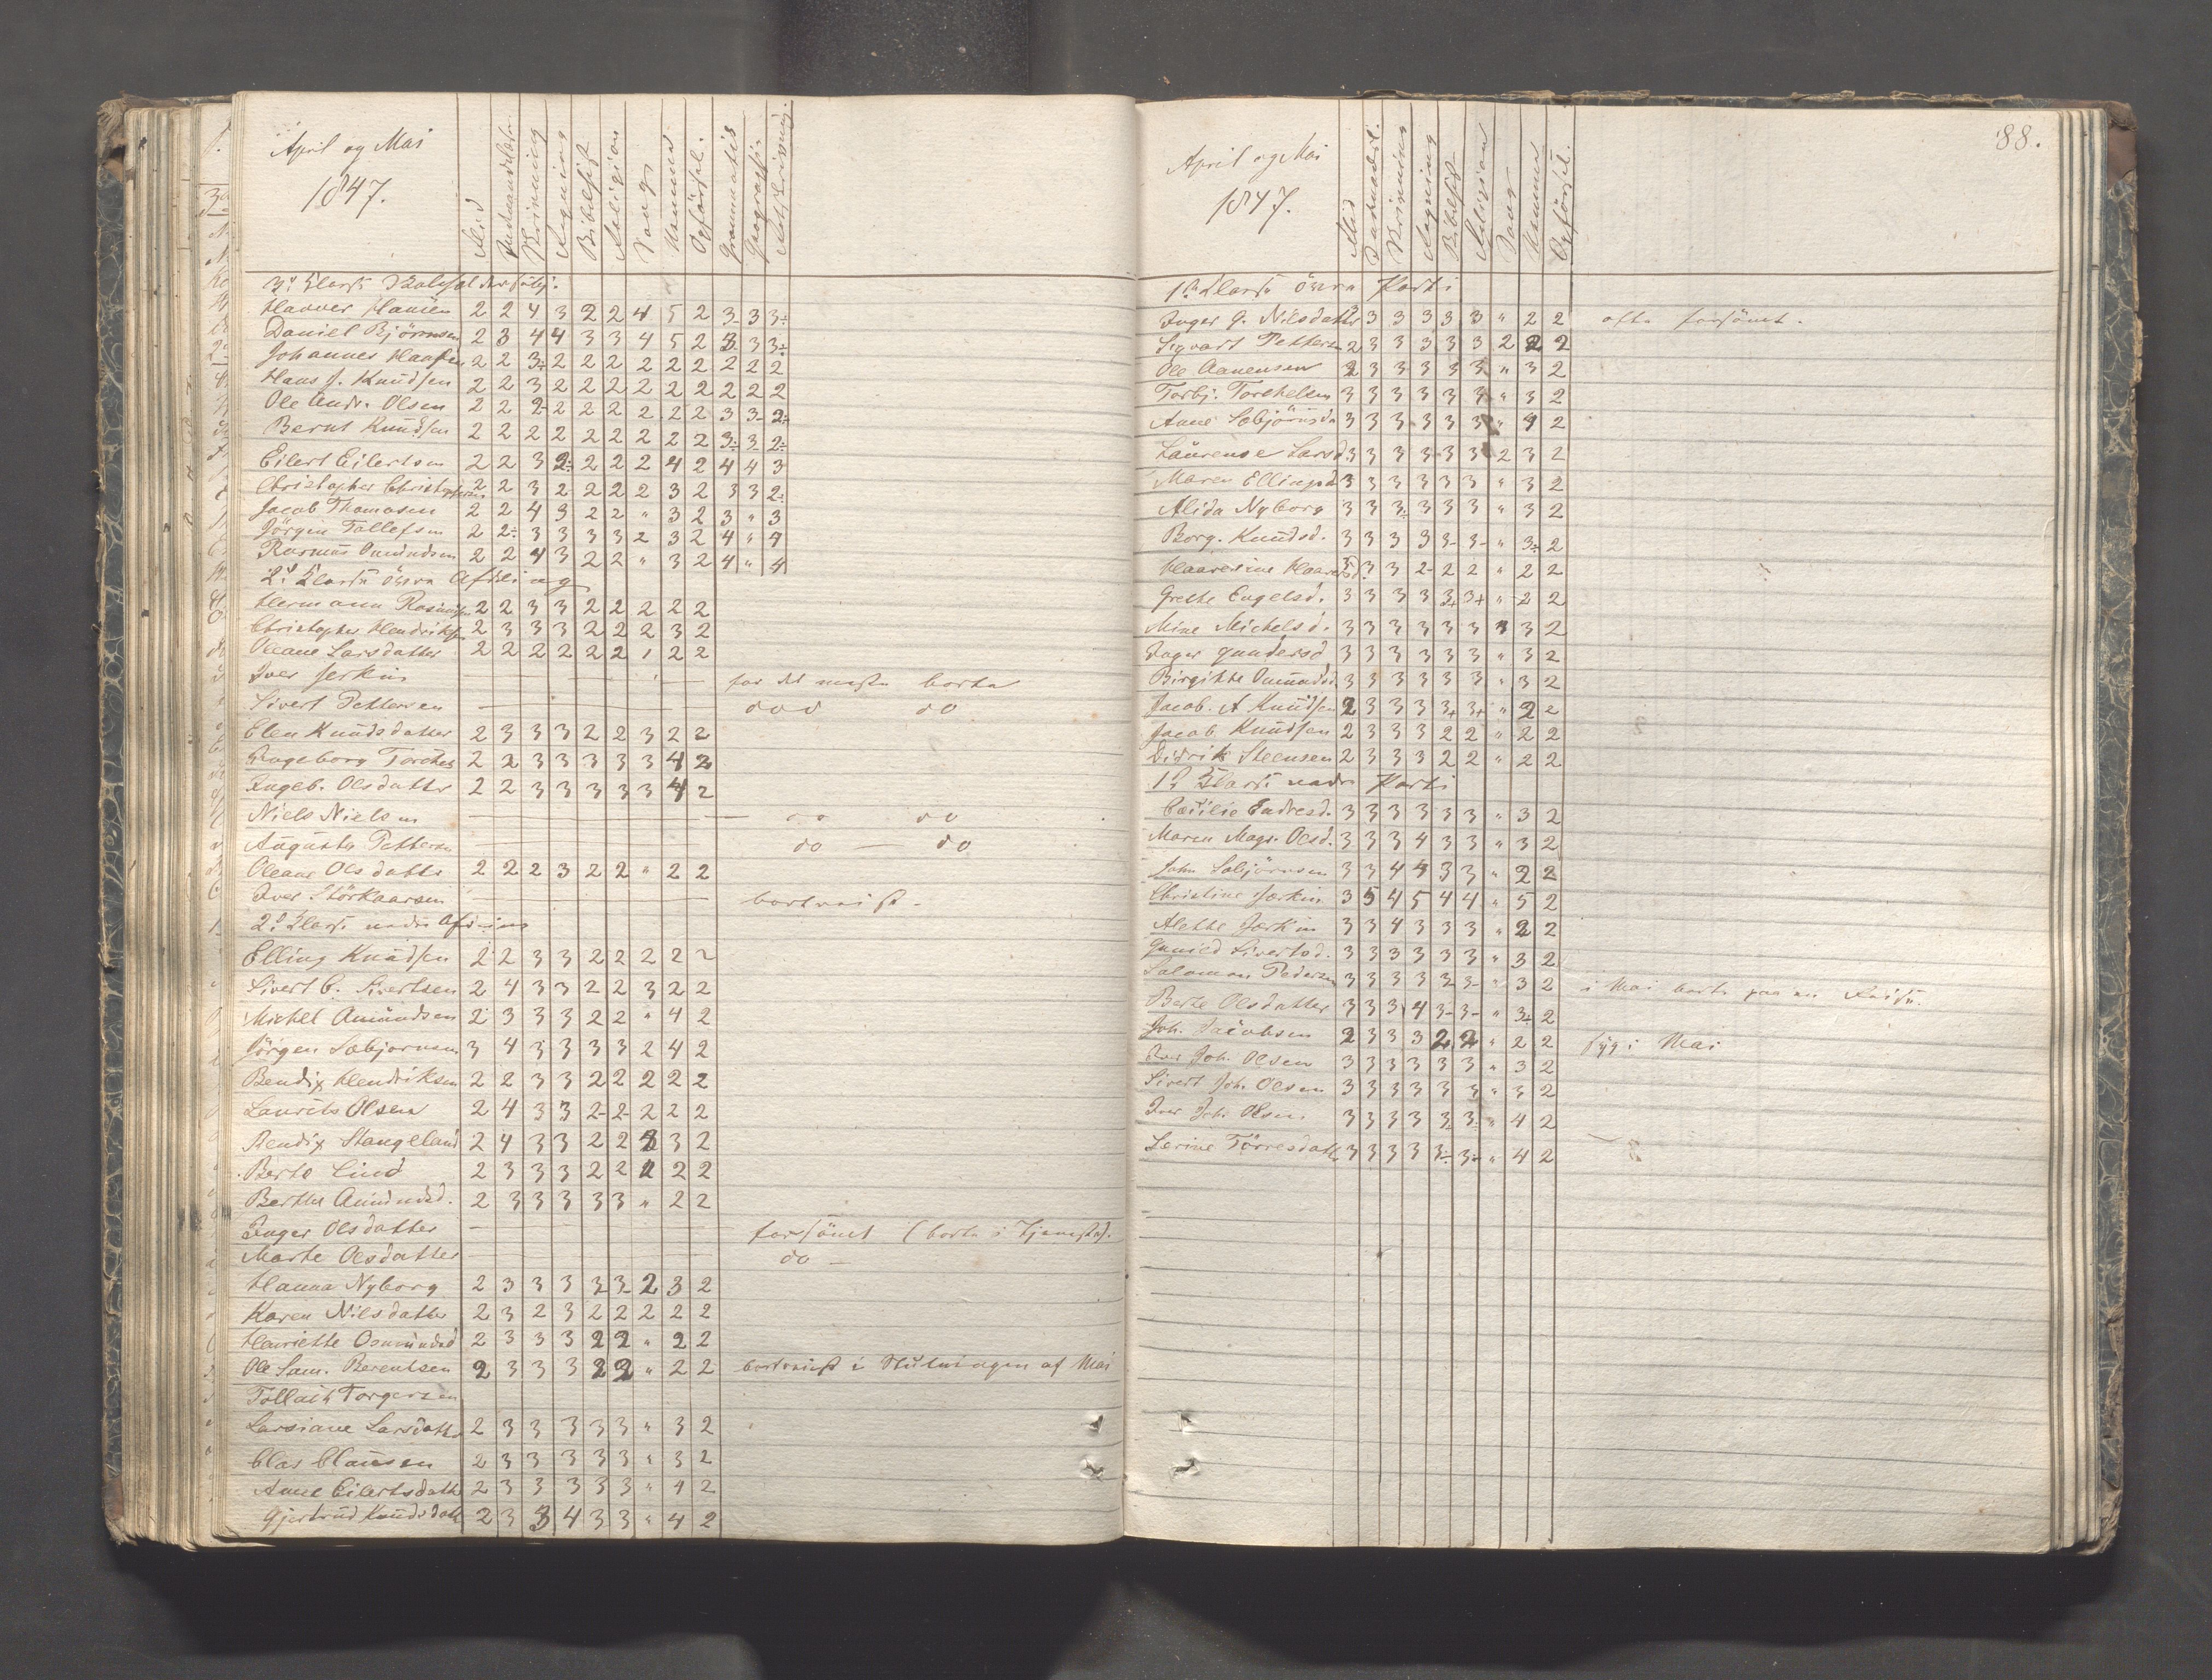 April og Mai
1847.
Flid
Skrivning
Regning
Bibelhist
Religion
Sang
Udenad
Opførsel.
Grammatik
Geografi
3d Klasse
Haaver Hansen 2 2 4 3 2 2 4 5 2 3- 3 3÷
Daniel Bjørnsen 2 3 4 4 3 3 4 5 2 3 3 3÷
Johannes Haafsen 2 2 3÷ 2 2 2 2 2 2 2 2 2
Hans J. Knudsen 2 2 3 2 2 2 2 2 2 2 2 2
Ole Andr. Olsen 2 2 2- 2 2 2 2 2 2 3 3- 2÷
Bernt Knudsen 2 2 2 2 2 2 2 2 2 3÷ 3 2÷
Eilert Eilertsen 2 2 3 2÷ 2 2 2 4 2 4 4 3
Christopher Christophersen 2 2 3 2 2 2 2 3 2 3 3 2÷
Jacob Thomasen 2 2 4 3 2 2 " 3 2 3 " 3
Jörgen Tollefsen 2 2÷ 3 3 3 3 2 3 2 4 " 4
Rasmus Omundsen 2 2 4 3 2 2 " 3 2 4 " 4
2d Klasse övre Afdeling
Hermann Rasmussen 2 2 3 3 2 2 2 2 2
Christopher Hendriksen 2 3 3 3 2 2 2 3 2
Oleane Larsdatter 2 2 2 2 2 2 1 2 2
Iver Jerkin — for det meste borte
Sivert Pettersen — do do
Elen Knudsdatter 2 3 3 3 2 2 3 2 2
Ingeborg Torches 2 2 3 3 3 3 3 4 2
Ingeb. Olsdatter 2 2 3 3 3 3 3 4 2
Niels Nielsen — do do
Augusta Pettersen — do — do
Oleane Olsdatter 2 2 2 3 2 2 " 2 2
Iver Störkaarsen — bortreist -
2d Klasse nedre Afdeling
Elling Knudsen 2 2 3 3 2 2 2 2 2
Sivert C. Sivertsen 2 4 3 3 2 2 3 2 2
Michel Amundsen 2 3 3 3 2 2 " 4 2
Jörgen Sæbjørnsen 3 4 3 3 3 3 2 4 2
Bendix Hendriksen 2 2 3 3 2 2 2 2 2
Laurits Olsen 2 4 3 3 2- 2- 2 2 2
Bendix Stangeland 2 4 3 3 2 2 3 3 2
Berta Lind 2 3 3 3 2 2 2 2 2
Berthe Amundsd. 2 3 3 3 3 3 " 2 2
Inger Olsdatter — forsömt (borte i Tjeneste).
Marte Olsdatter — do —
Hanna Nyborg 2 3 3 3 3 3- 2 3 2
Karen Nilsdatter 2 3 2 3 2 2 2 2 2
Henriette Osmundsd 2 3 3 3 2 2 " 2 2
Ole Sam. Berentsen 2 3 3 3 2 2 " 2 2 bortreist i Slutningen af Mai
Tollack Torgersen
Larsiane Larsdatter 2 3 3 3 3 3 " 3 2
Clas Clausen 2 3 3 3 3 3 " 3 2
Anne Eilertsdatter 2 3 3 3 3 3 " 4 2
Gjertrud Knudsdatt 2 3 3 4 3 3 " 4 2
88.
April og Mai
1847.
Flid
Skrivning
Regning
Bibelhist
Religion
Sang
Udenad
Opförsel.
1ste Klasse övre Parti
Inger G. Nilsdatter 3 3 3 3 3 " 2 2 ofte forsömt.
Sigvart Pettersen 2 3 3 3 3 3 2 2 2
Ole Aanensen 2 3 3 3 3 3 " 3 2
Torbj. Torchelsen 3 3 3 3 3 3 " 3 2
Anne Sæbjörnsda 3 3 3 3 3 3 " 4 2
Laurense Larsd. 3 3 3 3 3 3 2 3 2
Maren Ellingsd 3 3 3 3 3 3 " 3 2
Alida Nyborg 3 3 3÷ 3 3 3 " 3 2
Borg. Knudsd. 3 3 3 3 3- 3- " 3÷ 2
Haaversine Haaversd 3 3 2- 2 2 " 2 2
Grethe Engelsd. 3 3 3 3 3+ 3+ " 2 2
Mine Michelsd. 3 3 3 3 3 3 3 3 2
Inger Gundersd. 3 3 3 3 3 3 " 3 2
Birgitte Omundsd. 3 3 3 3 3 3 " 3 2
Jacob. A Knudsen 2 3 3 3 3+ 3+ " 2 2
Jacob Knudsen 2 3 3 3 2 2 " 2 2
Didrik Steensen 2 3 3 3 2 2 " 2 2
1ste Klasse nedre Parti
Cæcilie Endresd. 3 3 3 3 3 3 " 3 2
Maren Magr. Olsd. 3 3 3 4 3 3 " 3 2
John Sæbjörnsen 3 3 4 4 3 3 " 2 2
Christine Jærkin 3 5 4 5 4 4 " 5 2
Alethe Jærkin 3 3 4 3 3 3 " 2 2
Gunild Sivertsd. 3 3 3 3 3 3 " 3 2
Salomon Pedersen 3 3 3 3 3 3- " 3 2 i Mai borte paa en Reise.
Berte Olsdatter 3 3 3 4 3- 3- " 3÷ 2
Joh. Jacobsen 2 3 3 3 2 2 " 2 2 syg i Mai
Iver Joh. Olsen 3 3 3 3 3 3 " 3 2
Sivert Joh. Olsen 3 3 3 3 3 3 " 3 2
Iver Joh. Olsen 3 3 3 3 3 3 " 4 2
Serine Törresdatter 3 3 3 3 3÷ 3÷ " 4 2